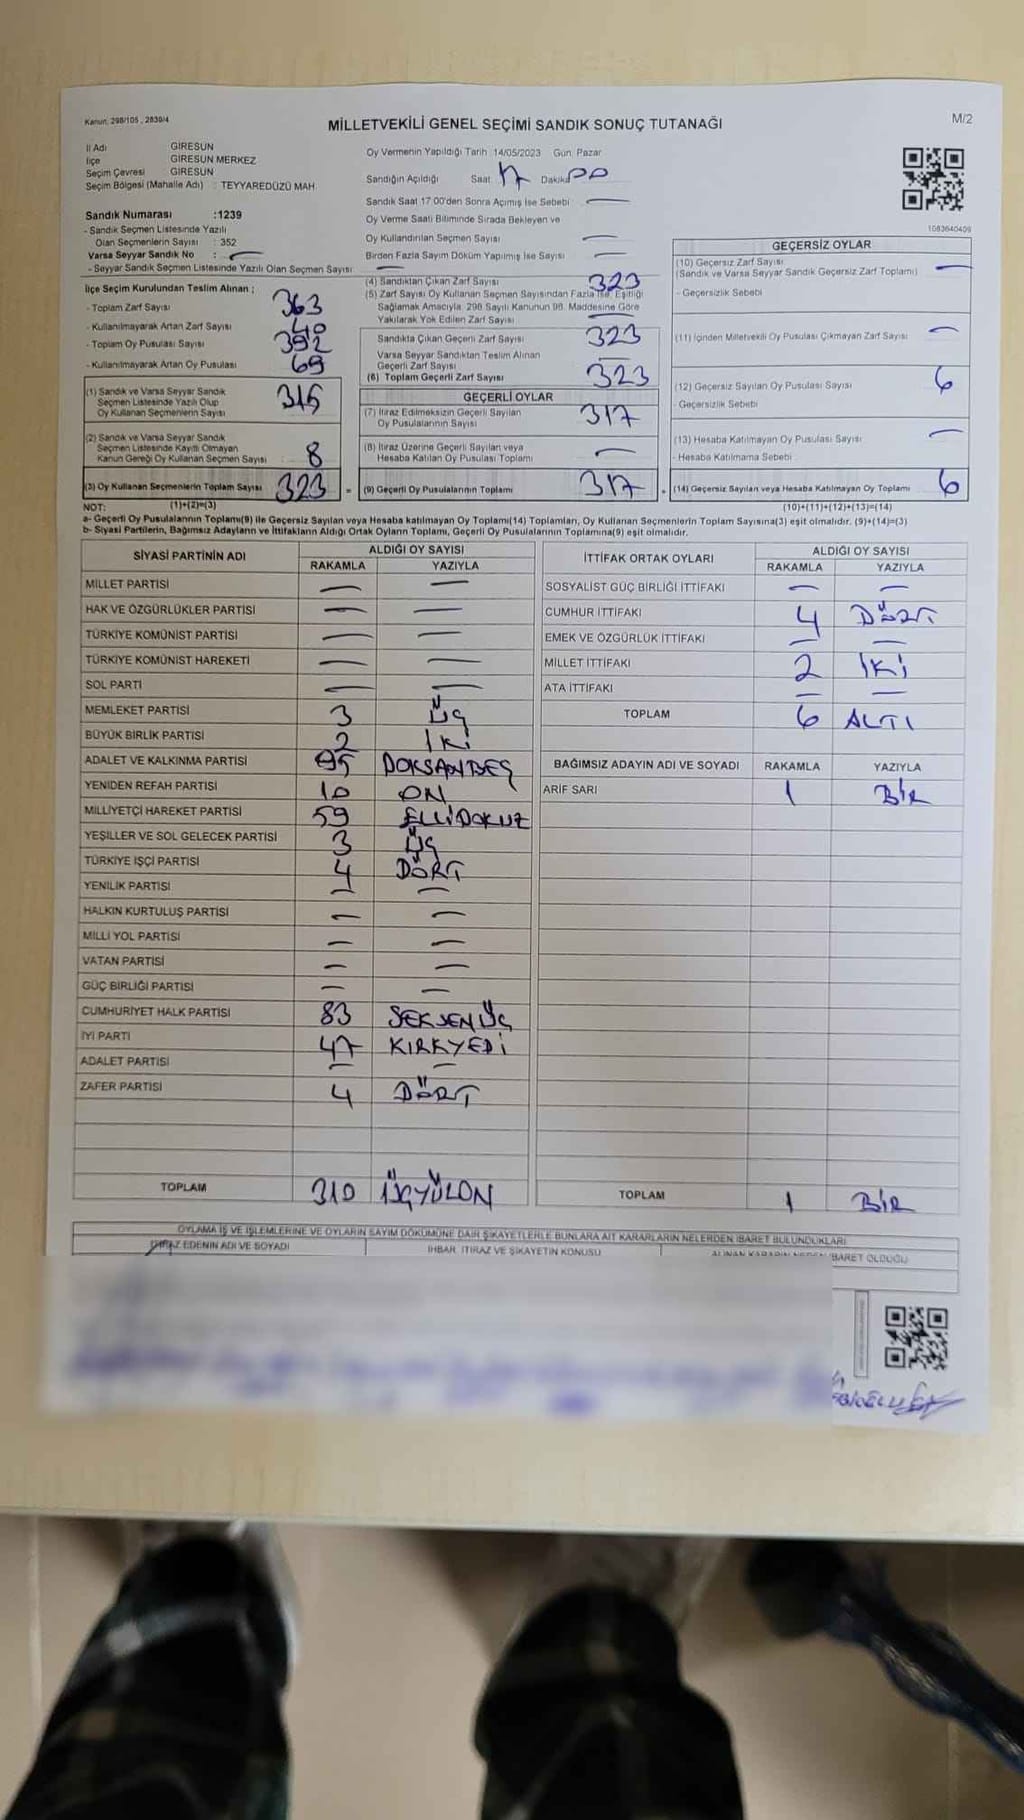 Kanun, 298/105 , 2839/4
MİLLETVEKİLİ GENEL SEÇİMİ SANDIK SONUÇ TUTANAĞI
M/2
İl Adı GİRESUN
İlçe GİRESUN MERKEZ
Seçim Çevresi GİRESUN
Seçim Bölgesi (Mahalle Adı) : TEYYAREDÜZÜ MAH
Sandık Numarası :1239
- Sandık Seçmen Listesinde Yazılı
Olan Seçmenlerin Sayısı : 352
Varsa Seyyar Sandık No : —
- Seyyar Sandık Seçmen Listesinde Yazılı Olan Seçmen Sayısı —
İlçe Seçim Kurulundan Teslim Alınan ;
- Toplam Zarf Sayısı 363
- Kullanılmayarak Artan Zarf Sayısı 40
- Toplam Oy Pusulası Sayısı 392
- Kullanılmayarak Artan Oy Pusulası 69
(1) Sandık ve Varsa Seyyar Sandık
Seçmen Listesinde Yazılı Olup
Oy Kullanan Seçmenlerin Sayısı 315
(2) Sandık ve Varsa Seyyar Sandık
Seçmen Listesinde Kayıtlı Olmayan
Kanun Gereği Oy Kullanan Seçmen Sayısı : 8
(3) Oy Kullanan Seçmenlerin Toplam Sayısı 323
Oy Vermenin Yapıldığı Tarih 14/05/2023 Gün. Pazar
Sandığın Açıldığı Saat 17 Dakika 00
Sandık Saat 17.00'den Sonra Açılmış İse Sebebi —
Oy Verme Saati Bitiminde Sırada Bekleyen ve
Oy Kullandırılan Seçmen Sayısı —
Birden Fazla Sayım Döküm Yapılmış İse Sayısı —
(4) Sandıktan Çıkan Zarf Sayısı 323
(5) Zarf Sayısı Oy Kullanan Seçmen Sayısından Fazla ise, Eşitliği
Sağlamak Amacıyla, 298 Sayılı Kanunun 98. Maddesine Göre
Yakılarak Yok Edilen Zarf Sayısı —
Sandıkta Çıkan Geçerli Zarf Sayısı 323
Varsa Seyyar Sandıktan Teslim Alınan
Geçerli Zarf Sayısı —
(6) Toplam Geçerli Zarf Sayısı 323
GEÇERLİ OYLAR
(7) İtiraz Edilmeksizin Geçerli Sayılan
Oy Pusulalarının Sayısı 317
(8) İtiraz Üzerine Geçerli Sayılan veya
Hesaba Katılan Oy Pusulası Toplamı —
= (9) Geçerli Oy Pusulalarının Toplamı 317
1083640409
GEÇERSİZ OYLAR
(10) Geçersiz Zarf Sayısı —
(Sandık ve Varsa Seyyar Sandık Geçersiz Zarf Toplamı)
- Geçersizlik Sebebi
(11) İçinden Milletvekili Oy Pusulası Çıkmayan Zarf Sayısı —
(12) Geçersiz Sayılan Oy Pusulası Sayısı 6
- Geçersizlik Sebebi
(13) Hesaba Katılmayan Oy Pusulası Sayısı —
- Hesaba Katılmama Sebebi
+ (14) Geçersiz Sayılan veya Hesaba Katılmayan Oy Toplamı 6
NOT: (1)+(2)=(3) (10)+(11)+(12)+(13)=(14)
a- Geçerli Oy Pusulalarının Toplamı(9) ile Geçersiz Sayılan veya Hesaba katılmayan Oy Toplamı(14) Toplamları, Oy Kullanan Seçmenlerin Toplam Sayısına(3) eşit olmalıdır. (9)+(14)=(3)
b- Siyasi Partilerin, Bağımsız Adayların ve İttifakların Aldığı Ortak Oyların Toplamı, Geçerli Oy Pusulalarının Toplamına(9) eşit olmalıdır.
SİYASİ PARTİNİN ADI ALDIĞI OY SAYISI
RAKAMLA YAZIYLA
MİLLET PARTİSİ — —
HAK VE ÖZGÜRLÜKLER PARTİSİ — —
TÜRKİYE KOMÜNİST PARTİSİ — —
TÜRKİYE KOMÜNİST HAREKETİ — —
SOL PARTİ — —
MEMLEKET PARTİSİ 3 ÜÇ
BÜYÜK BİRLİK PARTİSİ 2 İKİ
ADALET VE KALKINMA PARTİSİ 95 DOKSANBEŞ
YENİDEN REFAH PARTİSİ 10 ON
MİLLİYETÇİ HAREKET PARTİSİ 59 ELLİDOKUZ
YEŞİLLER VE SOL GELECEK PARTİSİ 3 ÜÇ
TÜRKİYE İŞÇİ PARTİSİ 4 DÖRT
YENİLİK PARTİSİ — —
HALKIN KURTULUŞ PARTİSİ — —
MİLLİ YOL PARTİSİ — —
VATAN PARTİSİ — —
GÜÇ BİRLİĞİ PARTİSİ — —
CUMHURİYET HALK PARTİSİ 83 SEKSENÜÇ
İYİ PARTİ 47 KIRKYEDİ
ADALET PARTİSİ — —
ZAFER PARTİSİ 4 DÖRT
TOPLAM 310 ÜÇYÜZON
İTTİFAK ORTAK OYLARI ALDIĞI OY SAYISI
RAKAMLA YAZIYLA
SOSYALİST GÜÇ BİRLİĞİ İTTİFAKI — —
CUMHUR İTTİFAKI 4 DÖRT
EMEK VE ÖZGÜRLÜK İTTİFAKI — —
MİLLET İTTİFAKI 2 İKİ
ATA İTTİFAKI — —
TOPLAM 6 ALTI
BAĞIMSIZ ADAYIN ADI VE SOYADI RAKAMLA YAZIYLA
ARİF SARI 1 BİR
TOPLAM 1 BİR
OYLAMA İŞ VE İŞLEMLERİNE VE OYLARIN SAYIM DÖKÜMÜNE DAİR ŞİKAYETLERLE BUNLARA AİT KARARLARIN NELERDEN İBARET BULUNDUKLARI
İTİRAZ EDENİN ADI VE SOYADI İHBAR, İTİRAZ VE ŞİKAYETİN KONUSU ALINAN KARARIN NEDEN İBARET OLDUĞU